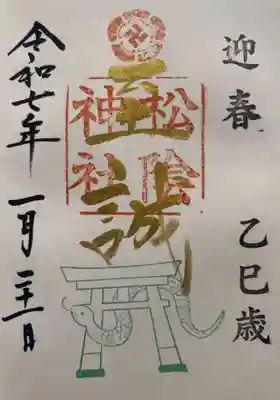 迎春 乙巳歳
至誠
松陰
神社
令和七年 一月二十一日